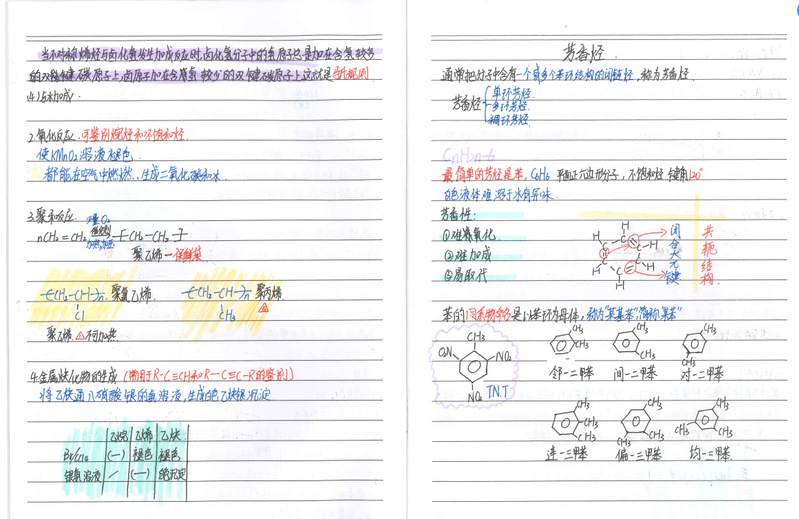 当不对称烯烃与卤化氢发生加成反应时,卤化氢分子中的氢原子总是加在含氢较多
的双键碳原子上,卤原子加在含氢较少的双键碳原子上,这就是马氏规则
2.氧化反应 可鉴别烷烃和不饱和烃
使KMnO4溶液褪色
都能在空气中燃烧,生成二氧化碳和水
3.聚合反应
nCH2=CH2 -[CH2-CH2-]-
聚乙烯-保鲜袋
-[CH2-CH-]n- 聚氯乙烯
Cl
-[CH2-CH-]n- 聚丙烯
CH3
4.金属炔化物的生成(常用于R-C≡CH和R-C≡C-R的鉴别)
将乙炔通入硝酸银的氨溶液,生成白色乙炔银沉淀
乙烷 乙烯 乙炔
Br2/CCl4 (—) 褪色 褪色
银氨溶液 / (—)
芳香烃
通常把分子中含有一个或多个苯环结构的 烃,称为芳香烃
芳香烃 单环芳烃
多环芳烃
稠环芳烃
CnH2n-6
最简单的芳烃是苯,C6H6 平面正六边形分子,不饱和烃 键角120°
色液体难溶于水有异味
芳香性:
①难氧化
②难加成
③易取代
H
C
闭合大π键
共轭结构
苯的同系物 是以苯环为母体,称为"某基苯"简称"某苯"
CH3
O2N
NO2
NO2
TNT
CH3
CH3
邻-二甲苯
CH3
CH3
间-二甲苯
CH3
CH3
对-二甲苯
CH3
CH3
CH3
连-三甲苯
CH3
CH3
CH3
偏-三甲苯
CH3
CH3
CH3
均-三甲苯